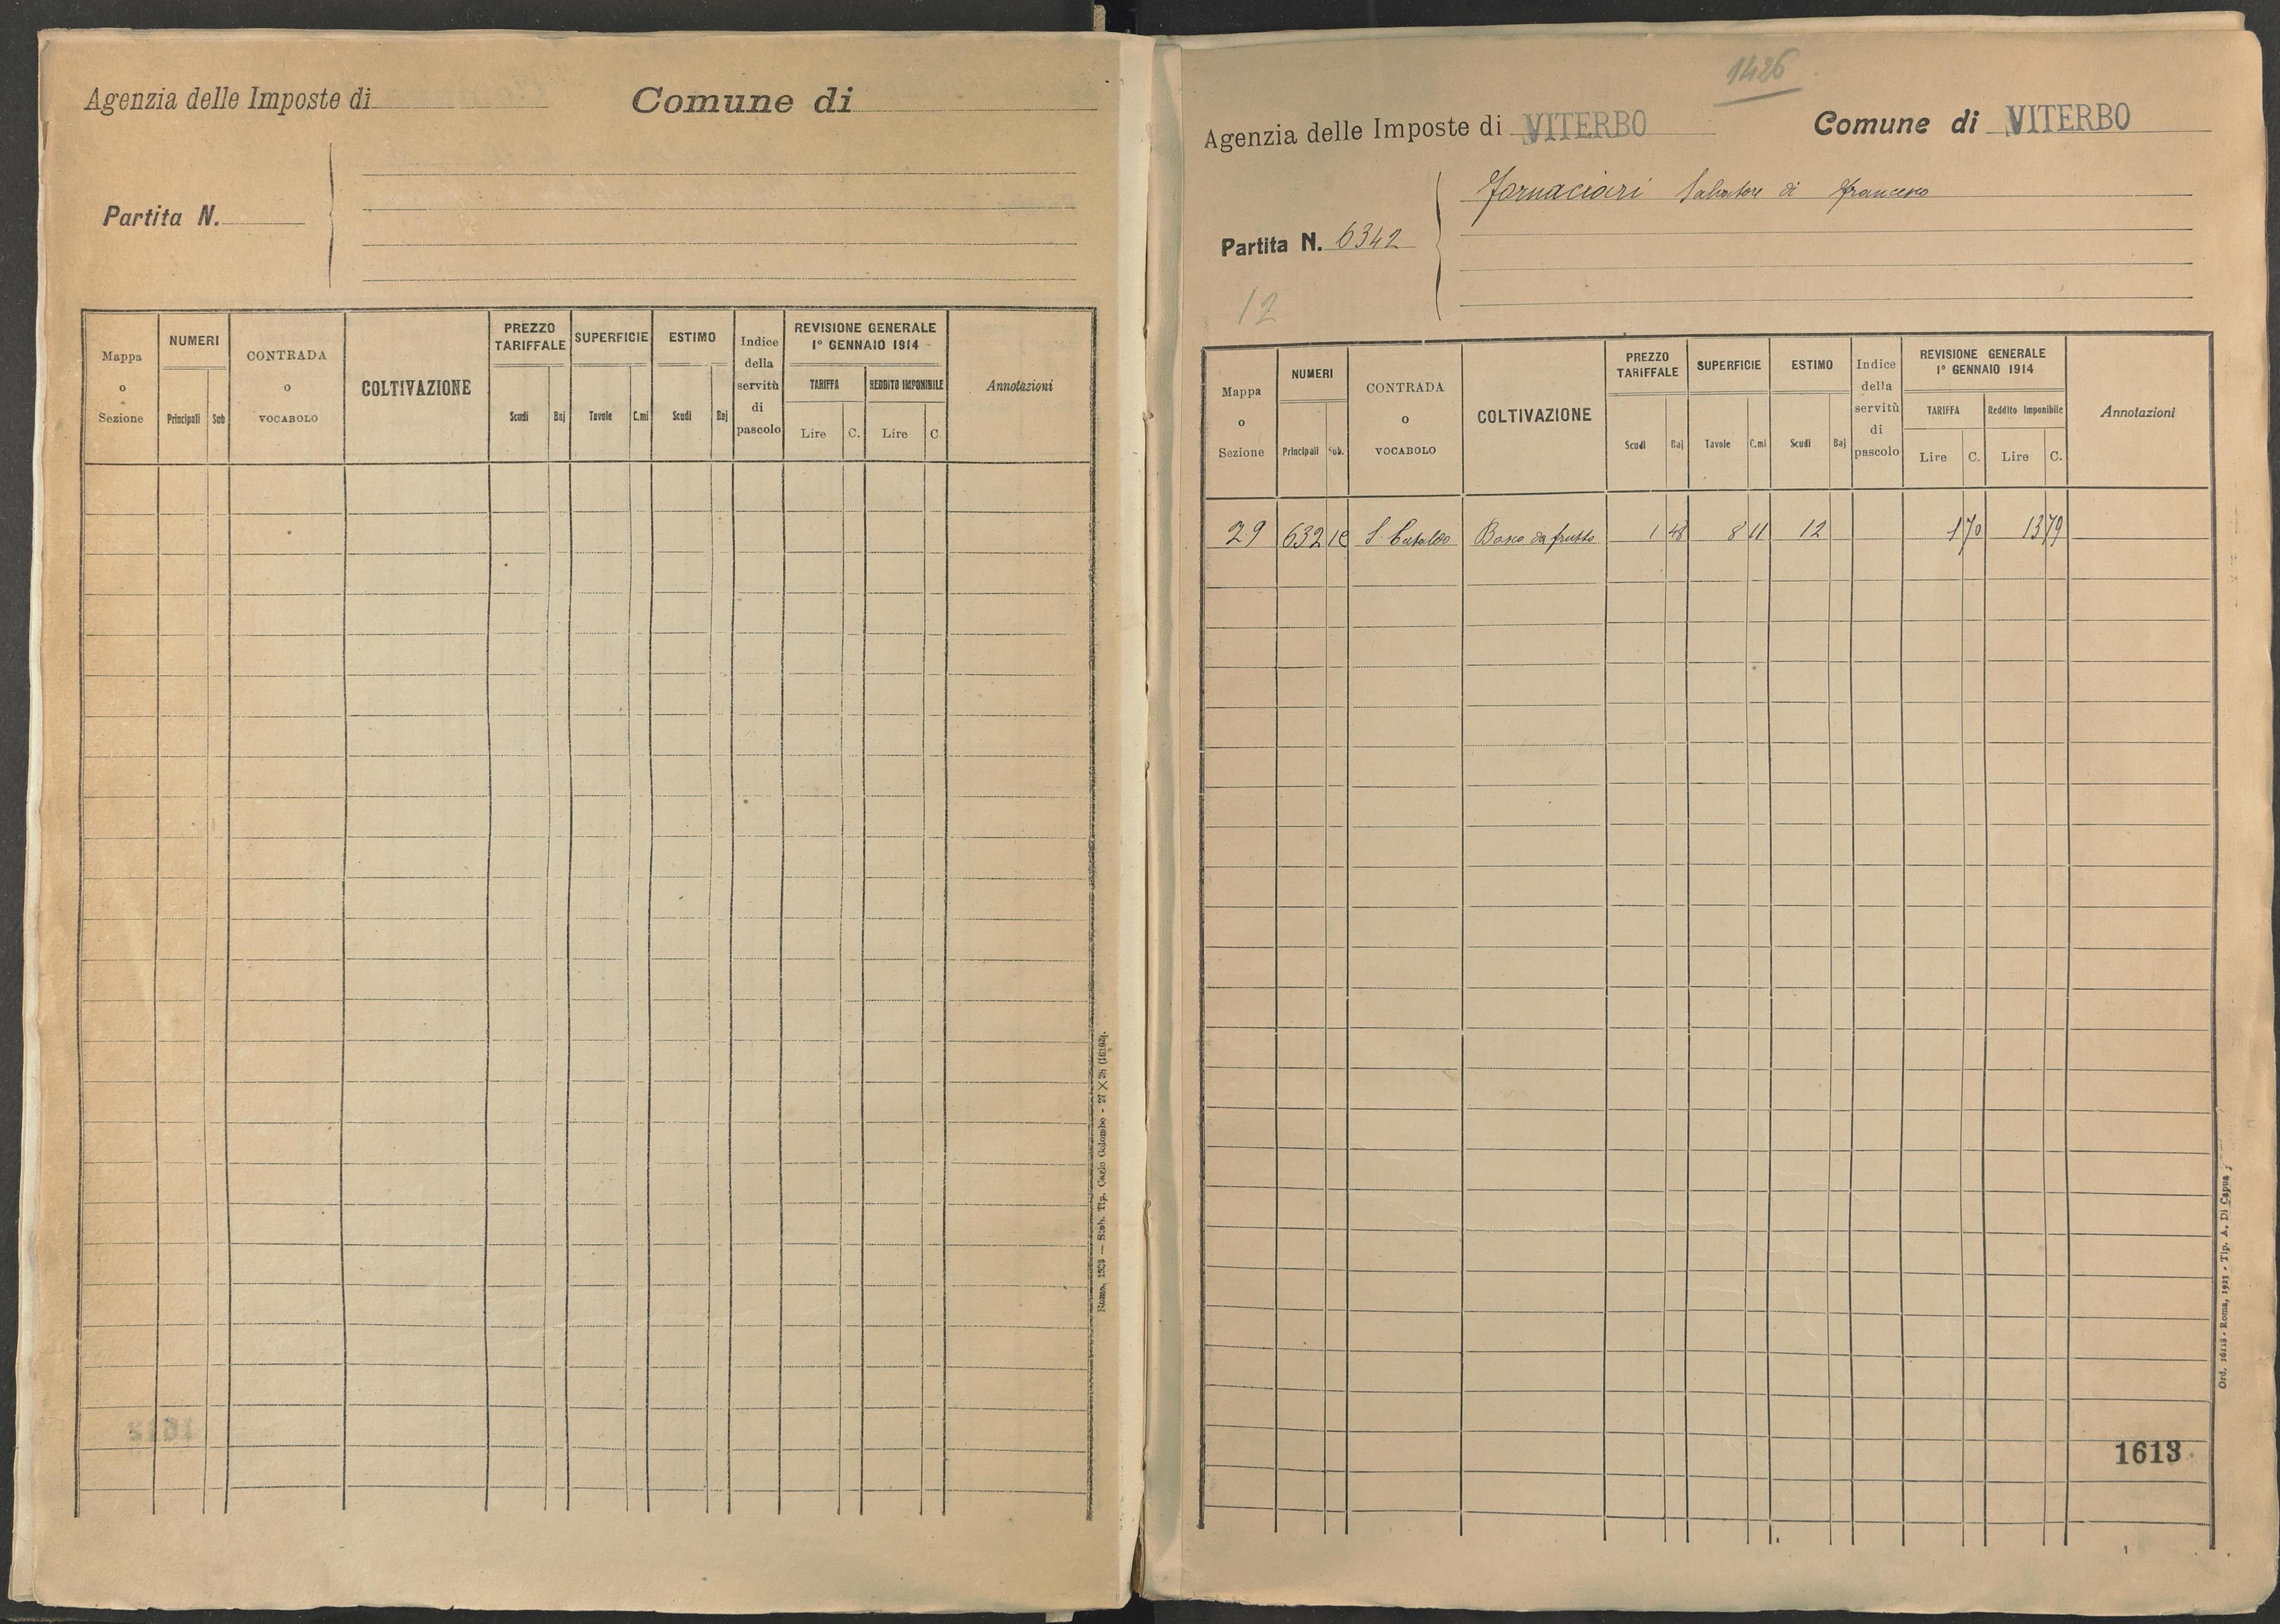 Agenzia delle Imposte di Comune di
Partita N.
Mappa o Sezione
NUMERI
Principali Sub
CONTRADA o VOCABOLO
COLTIVAZIONE
PREZZO TARIFFALE
Scudi Baj
SUPERFICIE
Tavole C.mi
ESTIMO
Scudi Baj
Indice della servitù di pascolo
REVISIONE GENERALE
1º GENNAIO 1914
TARIFFA REDDITO IMPONIBILE
Lire C. Lire C.
Annotazioni
1612
1426
Agenzia delle Imposte di VITERBO Comune di VITERBO
Fornaciari Salvatore di Francesco
Partita N. 6342
12
Mappa o Sezione
NUMERI
Principali Sub.
CONTRADA o VOCABOLO
COLTIVAZIONE
PREZZO TARIFFALE
Scudi Baj
SUPERFICIE
Tavole C.mi
ESTIMO
Scudi Baj
Indice della servitù di pascolo
REVISIONE GENERALE
1º GENNAIO 1914
TARIFFA Reddito Imponibile
Lire C. Lire C.
Annotazioni
29 632 S. Cataldo Bosco da frutto 1 48 8 11 12 1 70 13 79
1613
Ord. 16118 - Roma, 1923 - Tip. A. Di Capua